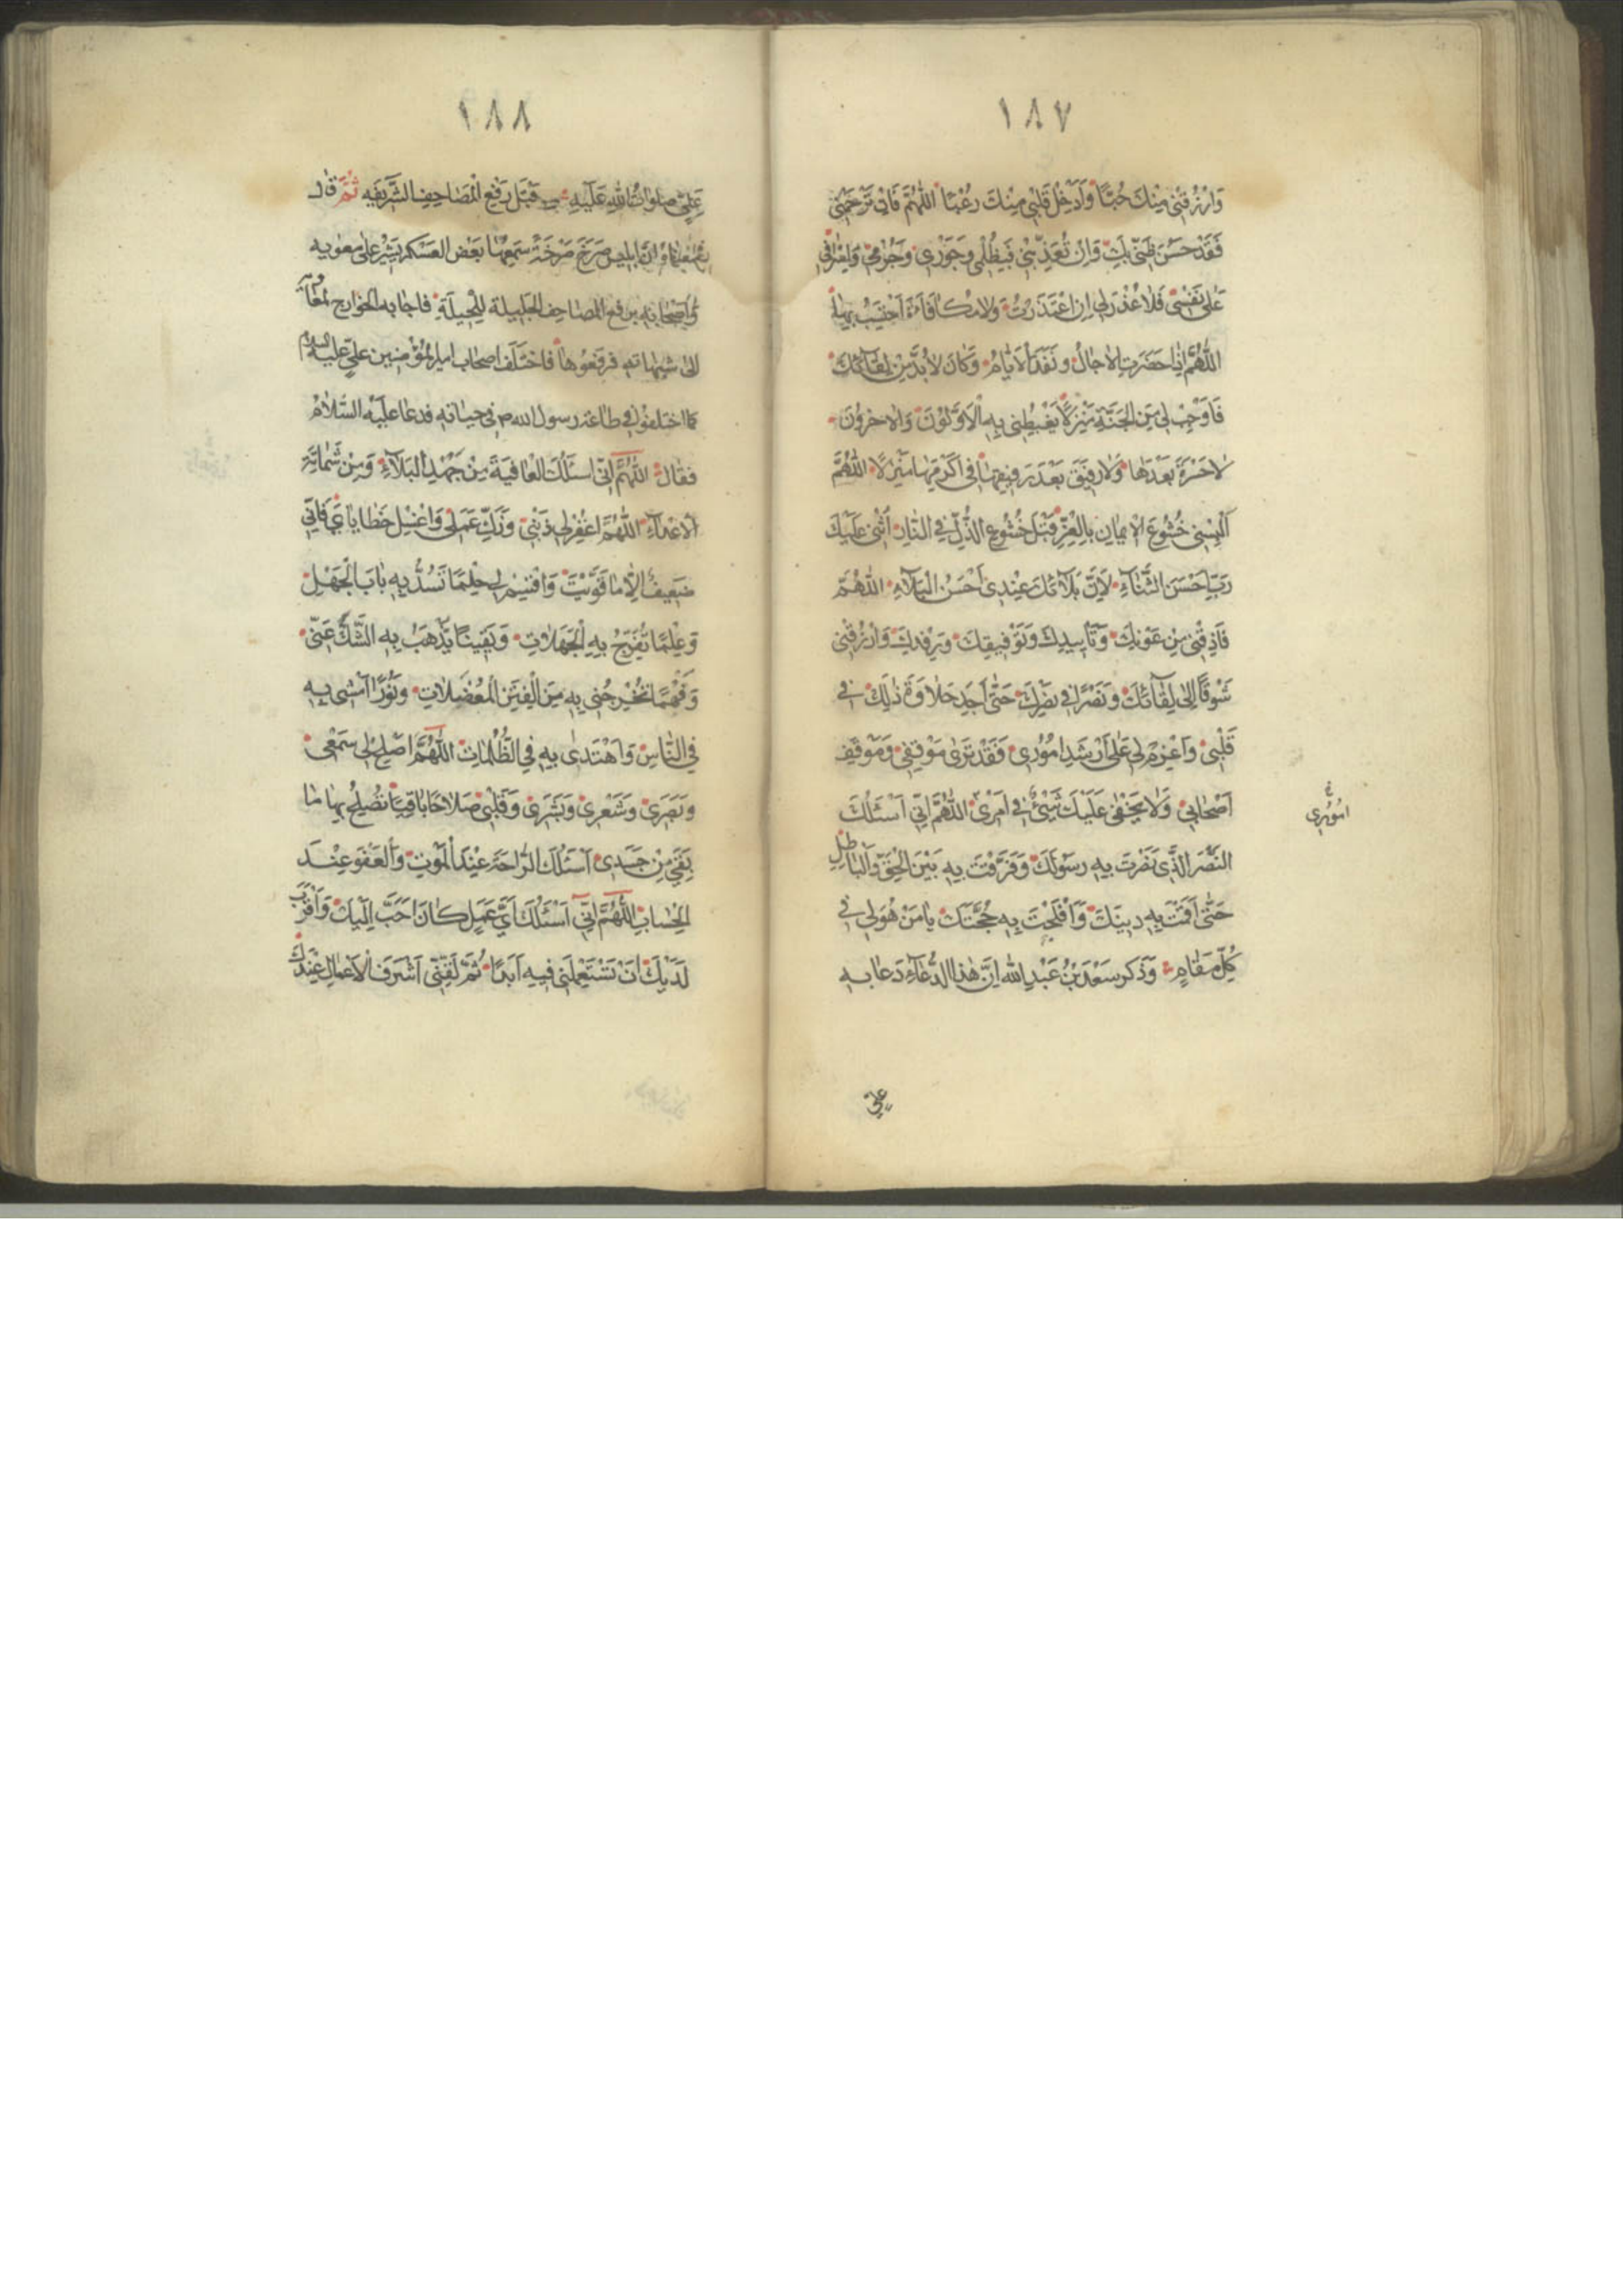 ١٨٧
وَارْزُقْنِي مِنْكَ حُبًّا وَأَدْخِلْ قَلْبِي مِنْكَ رُعْبًا اللّٰهُمَّ فَإِنْ تَرْحَمْنِي
فَقَدْ حَسُنَ ظَنِّي بِكَ وَإِنْ تُعَذِّبْنِي فَبِظُلْمِي وَجَوْرِي وَجُرْمِي وَإِسْرَافِي
عَلَى نَفْسِي فَلَا عُذْرَ لِي إِنِ اعْتَذَرْتُ وَلَا مُكَافَاةَ أَحْتَسِبُ بِهَا
اللّٰهُمَّ إِذَا حَضَرَتِ الْآجَالُ وَنَفِدَ الْأَيَّامُ وَكَانَ لَا بُدَّ مِنْ لِقَائِكَ
فَأَوْجِبْ لِي مِنَ الْجَنَّةِ مَنْزِلًا يَغْبِطُنِي بِهِ الْأَوَّلُونَ وَالْآخِرُونَ
لَا حَسْرَةَ بَعْدَهَا وَلَا رَفِيقَ بَعْدَ رَفِيقِهَا فِي أَكْرَمِهَا مَنْزِلًا اللّٰهُمَّ
أَلْبِسْنِي خُشُوعَ الْإِيمَانِ بِالْعِزِّ قَبْلَ خُشُوعِ الذُّلِّ فِي النَّارِ أُثْنِي عَلَيْكَ
رَبِّ أَحْسَنَ الثَّنَاءِ لِأَنَّ بَلَاءَكَ عِنْدِي أَحْسَنُ الْبَلَاءِ اللّٰهُمَّ
فَأَذِقْنِي مِنْ عَوْنِكَ وَتَأْيِيدِكَ وَتَوْفِيقِكَ وَرِفْدِكَ وَارْزُقْنِي
شَوْقًا إِلَى لِقَائِكَ وَنَصْرًا فِي نَصْرِكَ حَتَّى أَجِدَ حَلَاوَةَ ذٰلِكَ فِي
قَلْبِي وَاعْزِمْ لِي عَلَى أَرْشَدِ أُمُورِي فَقَدْ تَرَى مَوْقِفِي وَمَوْقِفَ
أَصْحَابِي وَلَا يَخْفَى عَلَيْكَ شَيْءٌ فِي أَمْرِي اللّٰهُمَّ إِنِّي أَسْئَلُكَ
امُورِي
النَّصْرَ الَّذِي نَصَرْتَ بِهِ رَسُولَكَ وَفَرَّقْتَ بِهِ بَيْنَ الْحَقِّ وَالْبَاطِلِ
حَتَّى أَقَمْتَ بِهِ دِينَكَ وَأَفْلَجْتَ بِهِ حُجَّتَكَ يَا مَنْ هُوَ لِي فِي
كُلِّ مَقَامٍ وَذَكَرَ سَعْدُ بْنُ عَبْدِ اللهِ إِنَّ هٰذَا الدُّعَاءَ دَعَا بِهِ
عَلِيّ
١٨٨
عَلِيٌّ صَلَوَاتُ اللهِ عَلَيْهِ قَبْلَ رَفْعِ الْمَصَاحِفِ الشَّرِيفَةِ ثُمَّ قَالَ
إبليس صَرَخَ صَرْخَةً سَمِعَهَا بَعْضُ الْعَسْكَرِ يُشِيرُ عَلَى مُعٰوِيَه
وَأَصْحَابِهِ بِرَفْعِ الْمَصَاحِفِ الْجَلِيلَةِ لِلْحِيلَةِ فَأَجَابَهُ الْخَوَارِجُ لِمُعَاوِيَةَ
إِلَى شُبُهَاتِهِ فَرَفَعُوهَا فَاخْتَلَفَ أَصْحَابُ أَمِيرِ الْمُؤْمِنِينَ عَلِيٍّ عَلَيْهِ السلام
كَمَا اخْتَلَفُوا فِي طَاعَةِ رَسُولِ اللهِ ص فِي حَيَاتِهِ فَدَعَا عَلَيْهِ السَّلَامُ
فَقَالَ اللّٰهُمَّ إِنِّي أَسْئَلُكَ الْعَافِيَةَ مِنْ جَهْدِ الْبَلَاءِ وَمِنْ شَمَاتَةِ
الْأَعْدَاءِ اللّٰهُمَّ اغْفِرْ لِي ذَنْبِي وَزَكِّ عَمَلِي وَاغْسِلْ خَطَايَايَ فَإِنِّي
ضَعِيفٌ إِلَّا مَا قَوَّيْتَ وَاقْسِمْ لِي حِلْمًا تَسُدُّ بِهِ بَابَ الْجَهْلِ
وَعِلْمًا تُفَرِّجُ بِهِ الْجَهَلَاتِ وَيَقِينًا تُذْهِبُ بِهِ الشَّكَّ عَنِّي
وَفَهْمًا تُخْرِجُنِي بِهِ مِنَ الْفِتَنِ الْمُعْضِلَاتِ وَنُورًا أَمْشِي بِهِ
فِي النَّاسِ وَأَهْتَدِي بِهِ فِي الظُّلُمَاتِ اللّٰهُمَّ أَصْلِحْ لِي سَمْعِي
وَبَصَرِي وَشَعْرِي وَبَشَرِي وَقَلْبِي صَلَاحًا بَاقِيًا تُصْلِحُ بِهَا مَا
بَقِيَ مِنْ جَسَدِي أَسْئَلُكَ الرَّاحَةَ عِنْدَ الْمَوْتِ وَالْعَفْوَ عِنْدَ
الْحِسَابِ اللّٰهُمَّ إِنِّي أَسْئَلُكَ أَيَّ عَمَلٍ كَانَ أَحَبَّ إِلَيْكَ وَأَقْرَبَ
لَدَيْكَ أَنْ تَسْتَعْمِلَنِي فِيهِ أَبَدًا ثُمَّ لَقِّنِّي أَشْرَفَ الْأَعْمَالِ عِنْدَكَ